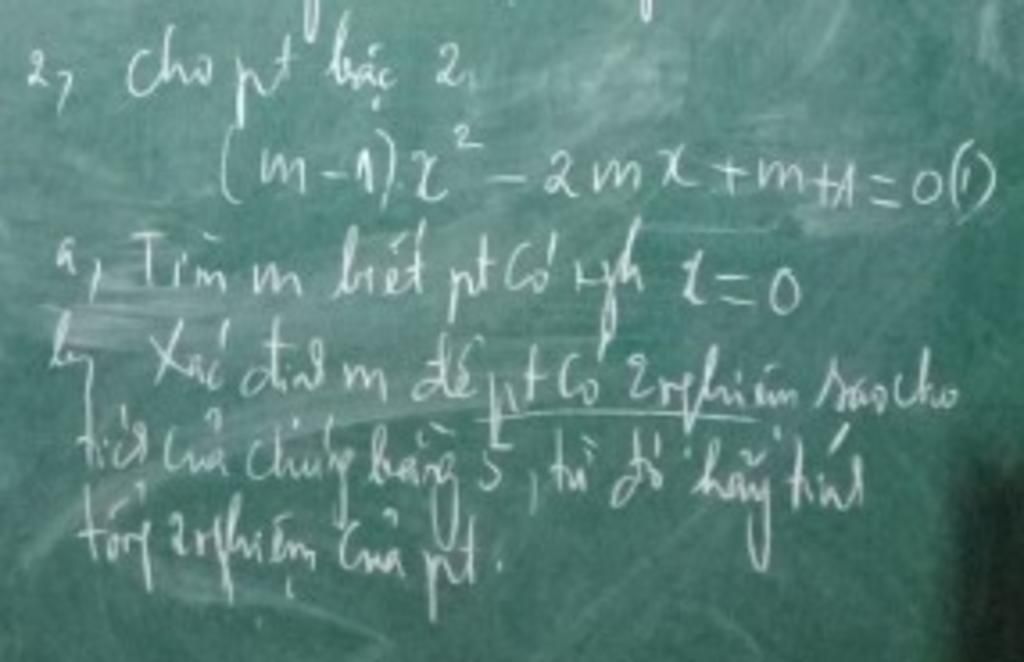 2, Cho pt bậc 2.
(m-1).x² - 2mx + m+1 = 0 (1)
a, Tìm m biết pt có ngh x=0
b, Xác định m để pt có 2 nghiệm sao cho
tích của chúng bằng 5, từ đó hãy tính
tổng 2 nghiệm của pt.